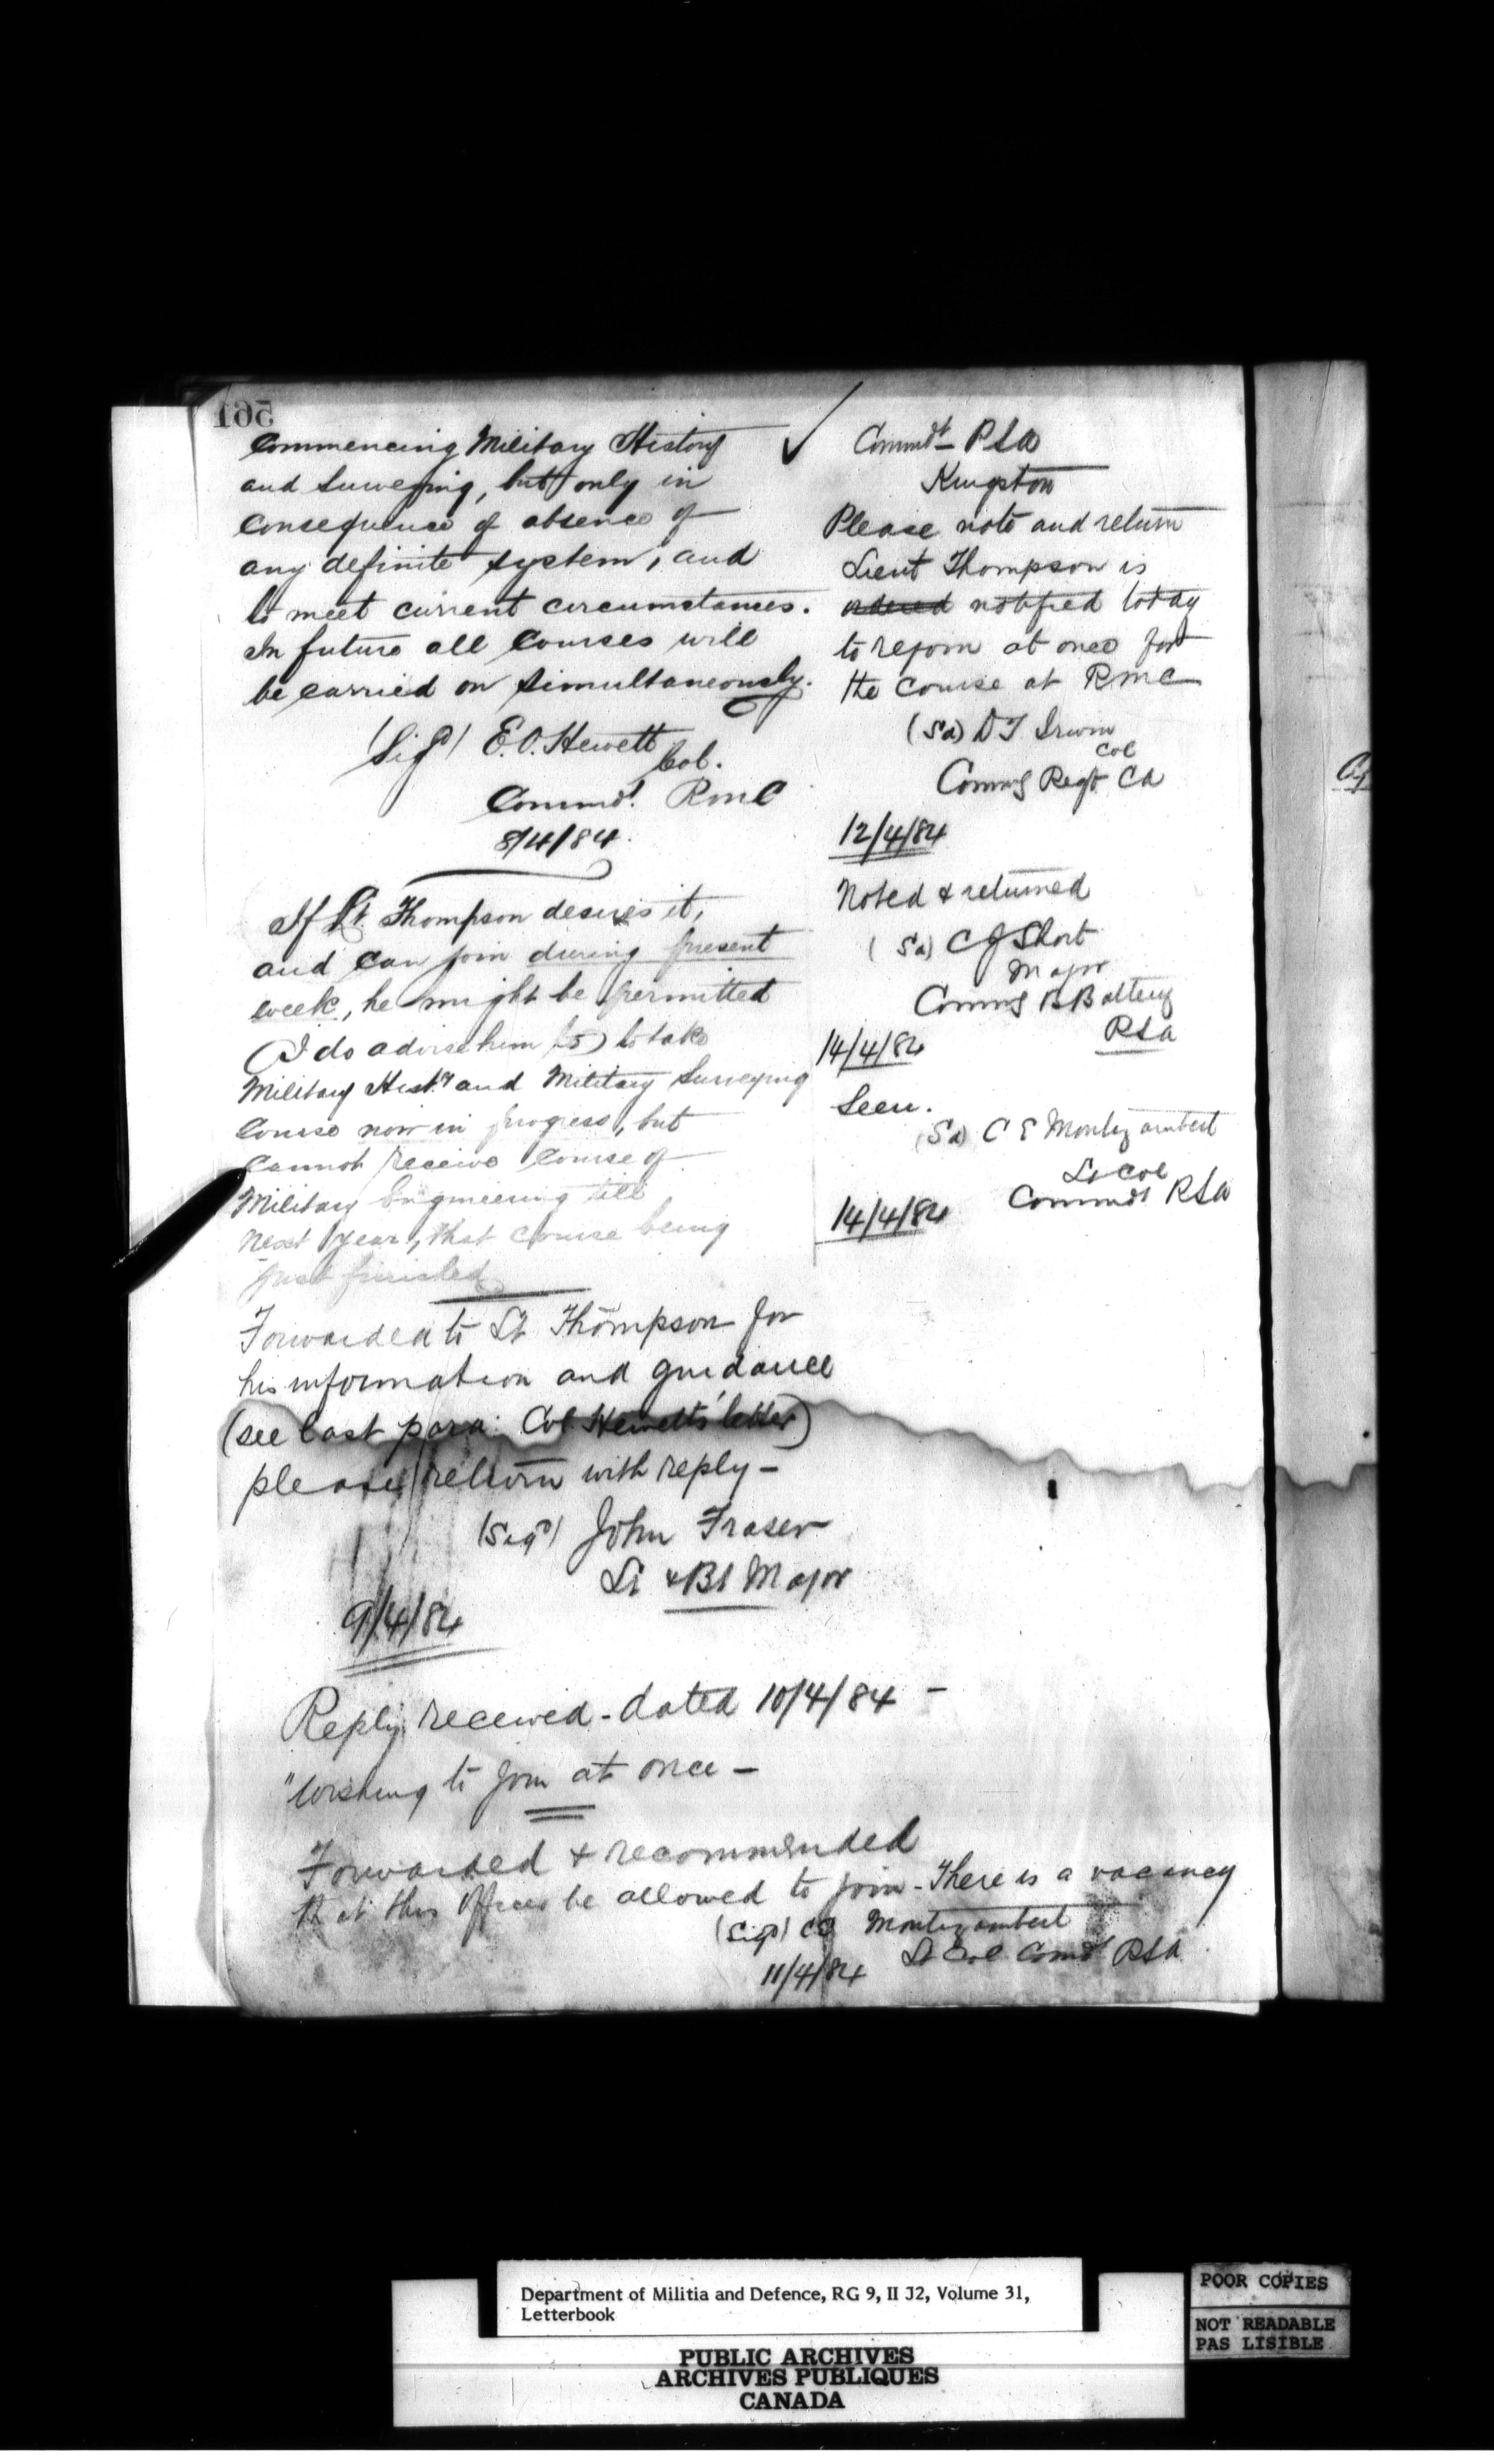 165
Commencing Military History
and Surveying, but only in
consequence of absence of
any definite system, and
to meet current circumstances.
In future all Courses will
be carried on simultaneously.
(Sigd) E.O. Hewett
Col.
Commdt. RMC
8/4/84.
If Lt. Thompson desires it,
and can join during present
week, he might be permitted
(I do advise him to) to take
Military Histy and Military Surveying
Course now in progress, but
cannot receive Course of
Military Engineering till
next year, that course being
just finished
Forwarded to Lt Thompson for
his information and guidance
(see last para: Col Hewetts' letter)
please return with reply -
(Sigd) John Fraser
Lt & Bt Major
9/4/84
Reply received - dated 10/4/84 -
"Wishing to join at once -
Forwarded & recommended
that this Officer be allowed to join - There is a vacancy
(Sigd) CE Montizambert
Lt Col Comdt RSA
11/4/84
Commdt - RSA
Kingston
Please note and return
Lieut Thompson is
ordered notified today
to rejoin at once for
the course at RMC
(Sd) D T Irwin
Col
Commg Regt CA
12/4/84
Noted & returned
(Sd) C J Short
Major
Commg B Battery
RSA
14/4/84
Seen.
(Sd) C E Montizambert
Lt Col
Commdt RSA
14/4/84
Department of Militia and Defence, RG 9, II J2, Volume 31,
Letterbook
PUBLIC ARCHIVES
ARCHIVES PUBLIQUES
CANADA
POOR COPIES
NOT READABLE
PAS LISIBLE